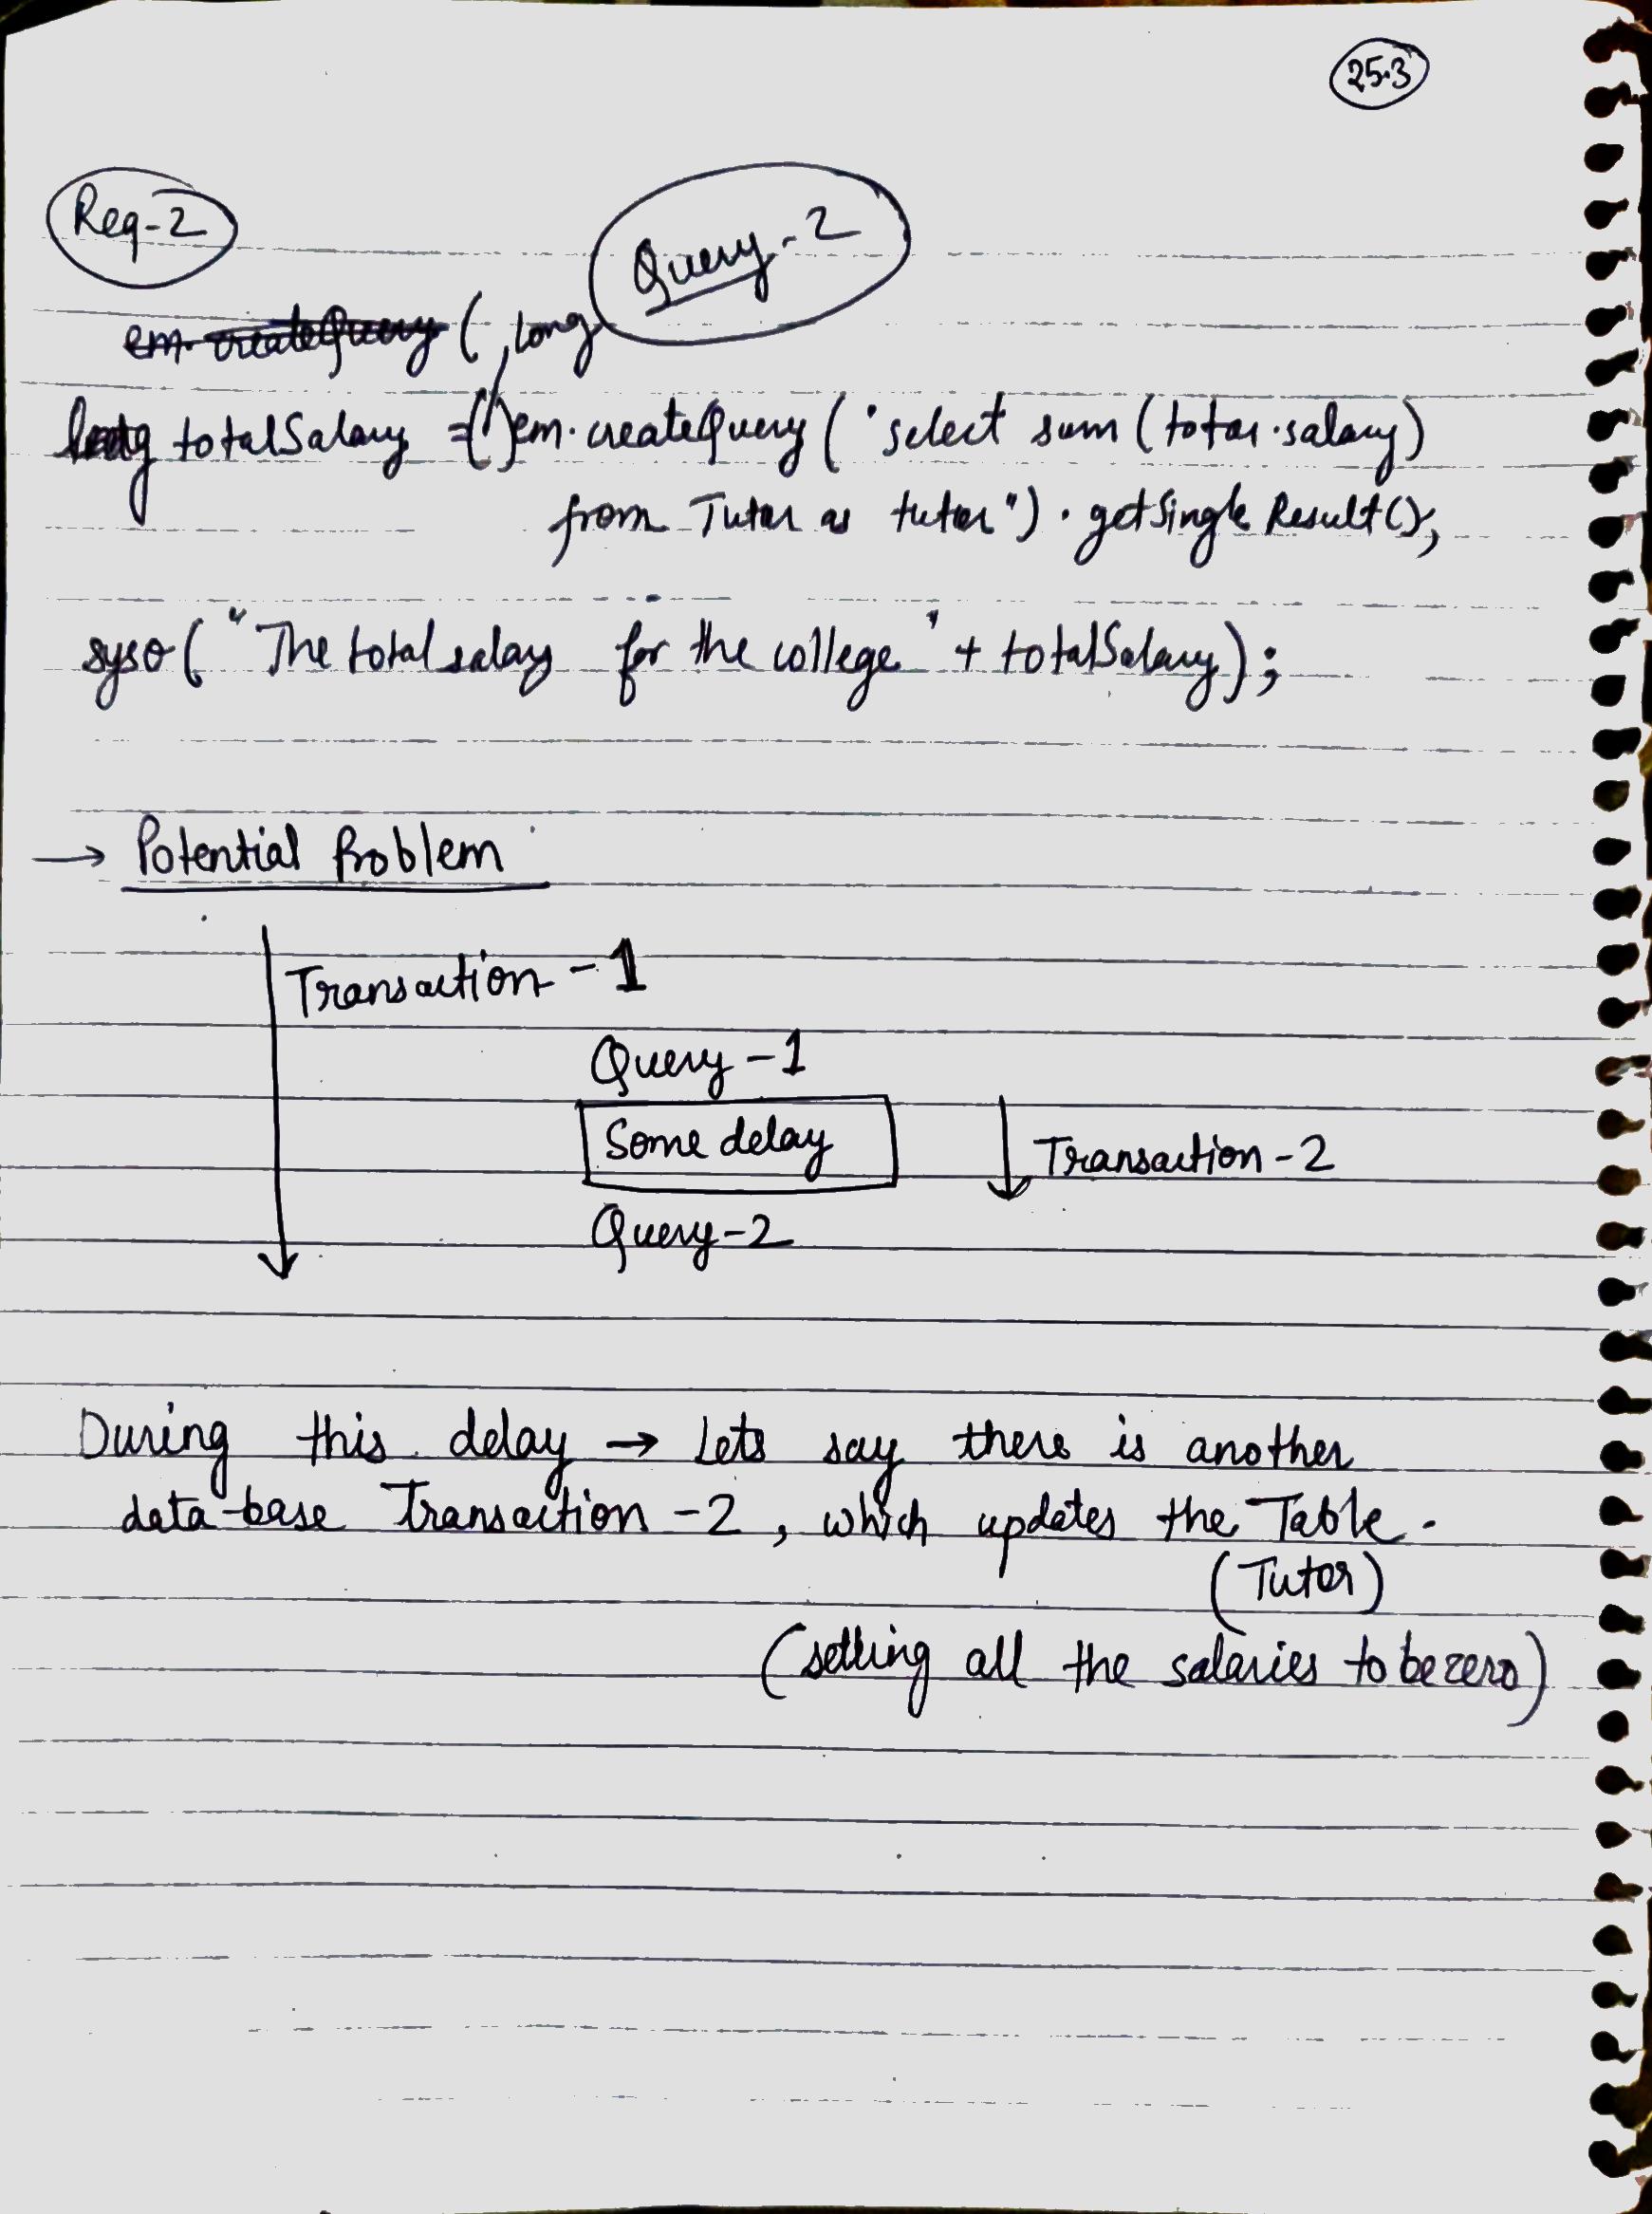 25.3
Req-2
Query-2
em. createQuery ( long
long totalSalary = ( ) em.createQuery ( "select sum (totar.salary)
from Tutar as tutor") . getSingle Result();
syso( "The total salary for the college" + totalSalary);
→ Potential Problem
Transaction - 1
Query - 1
Some delay
Transaction - 2
Query - 2
During this delay → Lets say there is another
data-base Transaction - 2 , which updates the Table.
(Tutor)
(setting all the salaries to be zero)